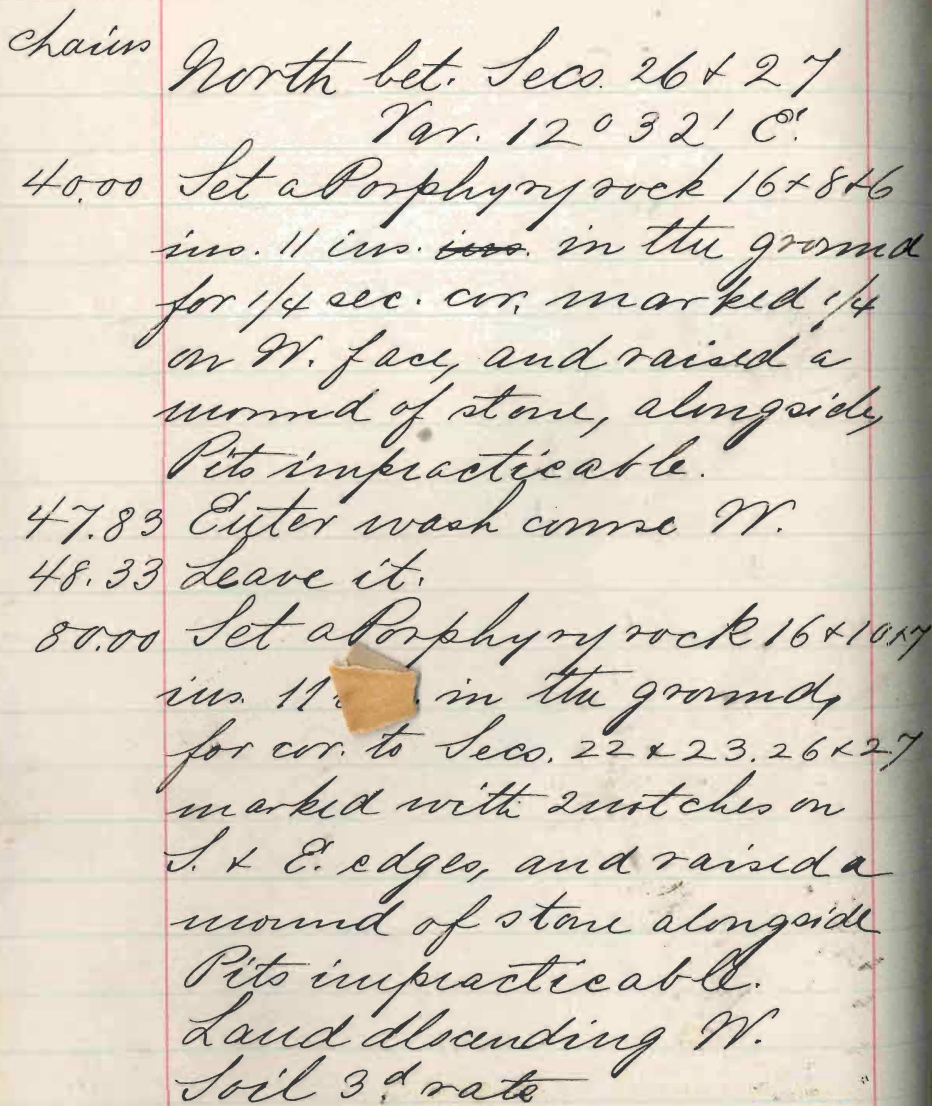 chains
North bet. Secs. 26 & 27
Var. 12° 32' E.
40.00 Set a Porphyry rock 16 x 8 x 6
ins. 11 ins. ins. in the ground
for 1/4 sec. cor. marked 1/4
on W. face, and raised a
mound of stone, alongside,
Pits impracticable.
47.83 Enter wash course W.
48.33 Leave it.
80.00 Set a Porphyry rock 16 x 10 x 7
ins. 11 in the ground,
for cor. to Secs. 22 & 23. 26 & 27
marked with 2 notches on
S. & E. edges, and raised a
mound of stone alongside
Pits impracticable.
Land descending W.
Soil 3d rate